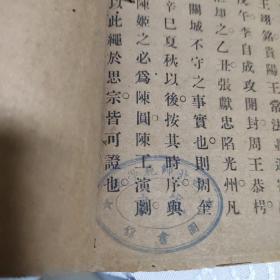 王翊銘貴陽王常法
午李自成攻開封周王恭枵
却之乙丑張獻忠陷光州凡
關城不守之事實也則
辛巳夏秋以後按其時序與
陳姬之必爲陳圓陳工演劇
以此繩於思宗皆可證也
圖書館